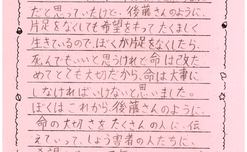 だと思っていたけど、後藤さんのように、
片足をなくしても希望をもってたくまし
生きているので、ぼくが片足をなくしたら、
死んでもいいと思うけれど命は改た
めてとても大切だから、命は大事に
しなければいけないと思いました。
ぼくはこれから、後藤さんのように、
命の大切さをたくさんの人に、伝
えていって、しょう害者の人たちに、